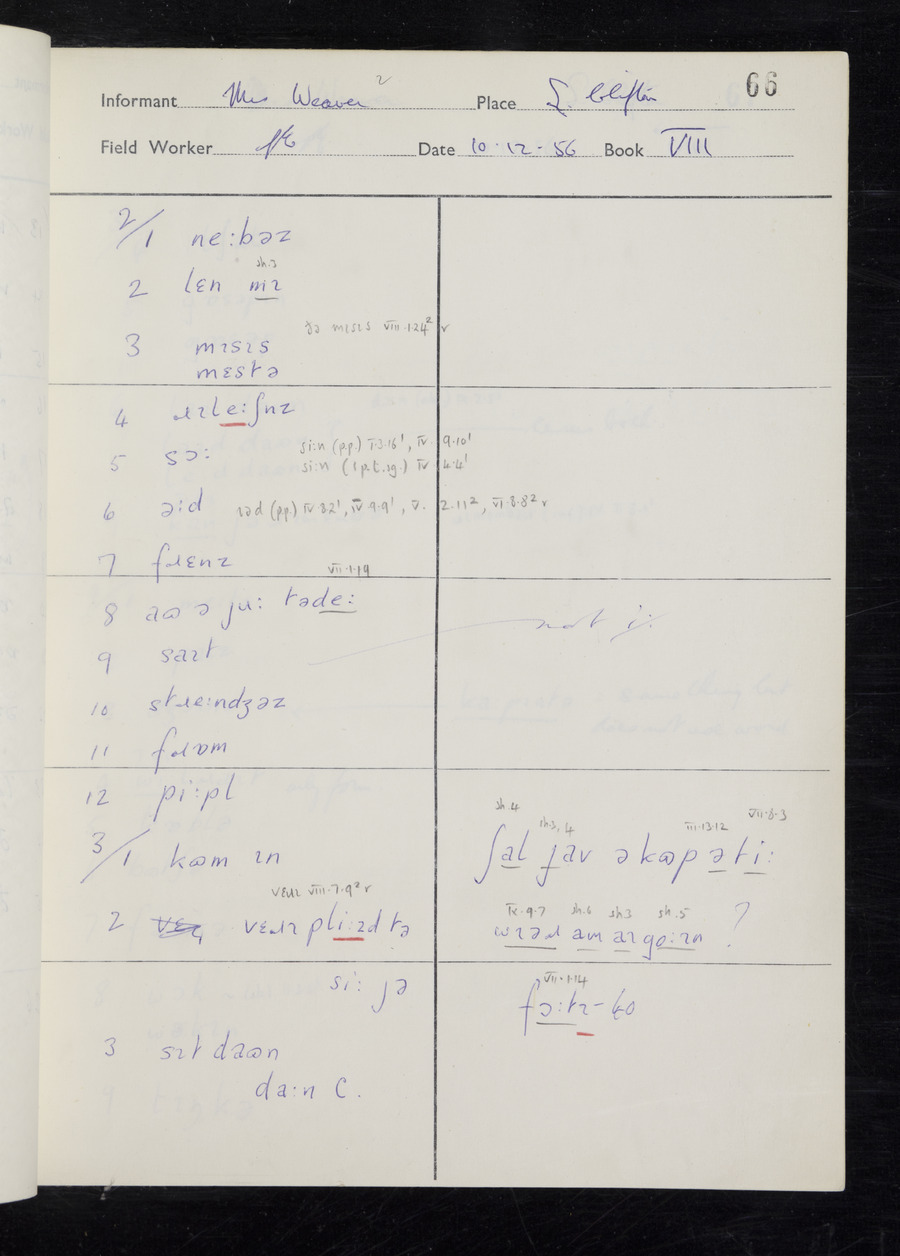 66
Informant Mrs Weaver 2 Place Clifton
Field Worker Date 10-12-56 Book VIII
2/1 ne:bəz
sh.3
2 lɛn mɪ
ðə mɪsɪs VIII.1.24² r
3 mɪsɪs
mɛstə
4 ɹɪle:ʃnz
5 sɔ: si:n (p.p.) V.3.16¹, IV.9.10¹
si:n (1 p.t.sg.) IV 4.4¹
6 ə:d ɪəd (pp.) IV.8.2¹, IV 9.9¹, V.2.11², VI.8.8² r
7 fɹɛnz
VII.1.19
8 aɷ ə ju: təde:
not
9 saɪt
10 stɹe:ndʒəz
11 fɹɒm
12 pi:pl
sh.4 sh.3, 4 III.13.12 VII.8.3
3/1 kɷm ɪn ʃal jav ə kɷp ə ti:
vɛɹɪ VIII.7.9² r
IX.9.7 sh.6 sh3 sh.5
2 vɛɹɪ pli:zd tə wɪəɹ am aɪ go:ɪn ?
si: jə
VII.1.14
fɔ:tɪ-
3 sɪt daɷn
da:n C.